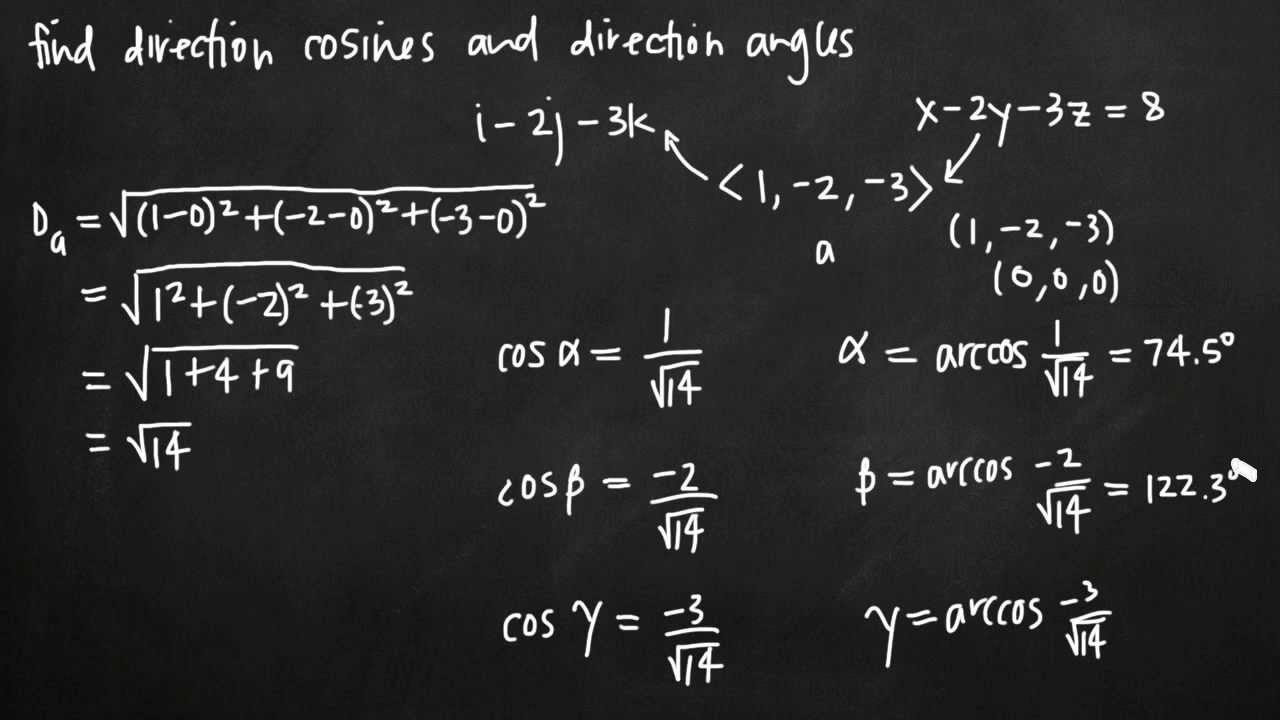 find direction cosines and direction angles
i - 2j - 3k
x - 2y - 3z = 8
<1, -2, -3>
a
(1, -2, -3)
(0, 0, 0)
Dₐ = √((1-0)² + (-2-0)² + (-3-0)²)
= √(1² + (-2)² + (-3)²)
= √(1+4+9)
= √14
cos α = 1/√14
α = arccos 1/√14 = 74.5°
cos β = -2/√14
β = arccos -2/√14 = 122.3°
cos γ = -3/√14
γ = arccos -3/√14